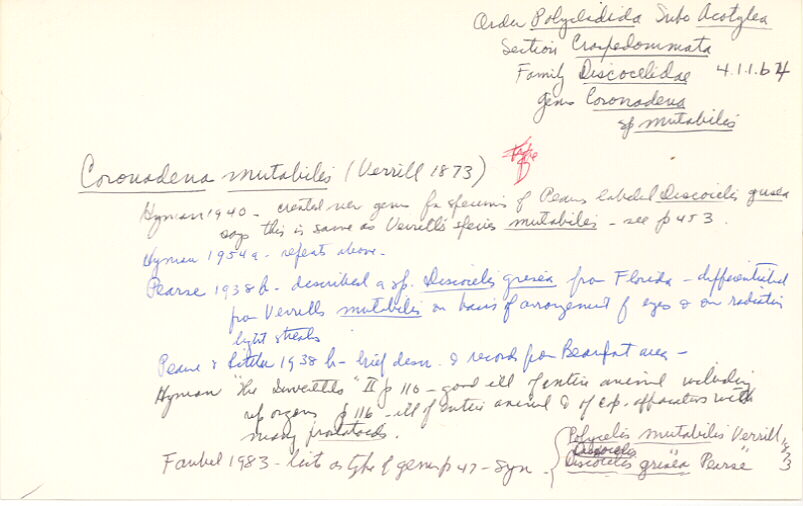 Order Polycladida Subo Acotylea
Section Craspedommata
Family Discocelidae 4.1.1.b
genus Coronadena
sp mutabilis
Coronadena mutabilis (Verrill 1873) type
Hyman 1940 - created new genus for specimens of Pearse labeled Discocelis grisea
says this is same as Verrill's species mutabilis - see p 453.
Hyman 1954a - repeats above -
Pearse 1938b - described a sp. Discocelis grisea from Florida - differentiated
from Verrills mutabilis on basis of arrangement of eyes & on radiating
light streaks
Pearse & 1938b - brief descr. & records from Beaufort area -
Hyman "the Inverteb" II p 110 - good ill of entire animal including
rep organs p 116 - ill of entire animal & of cop. apparatus with
many prostatoids.
Faubel 1983 - lists as type of genus p 47 - Syn
Polycelis mutabilis Verrill 1873
Discocelis grisea "Pearse"